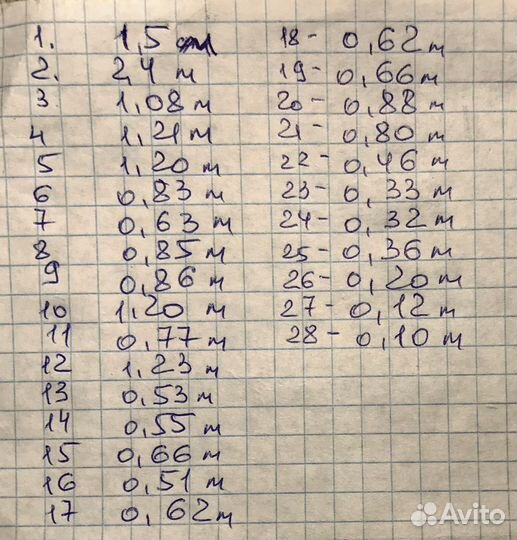 1. 1,5 м
2. 2,4 м
3 1,08 м
4 1,21 м
5 1,20 м
6 0,83 м
7 0,63 м
8 0,85 м
9 0,86 м
10 1,20 м
11 0,77 м
12 1,23 м
13 0,53 м
14 0,55 м
15 0,66 м
16 0,51 м
17 0,62 м
18 - 0,62 м
19 - 0,66 м
20 - 0,88 м
21 - 0,80 м
22 - 0,46 м
23 - 0,33 м
24 - 0,32 м
25 - 0,36 м
26 - 0,20 м
27 - 0,12 м
28 - 0,10 м
Avito